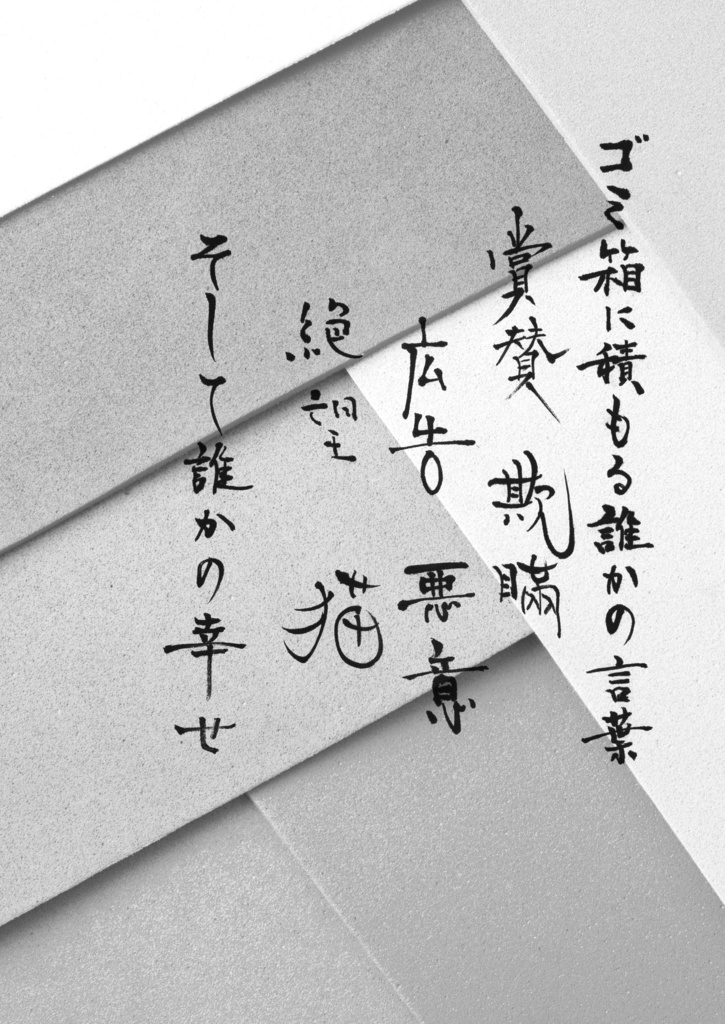 ゴミ箱に積もる誰かの言葉
賞賛 欺瞞
広告 悪意
絶望 猫
そして誰かの幸せ